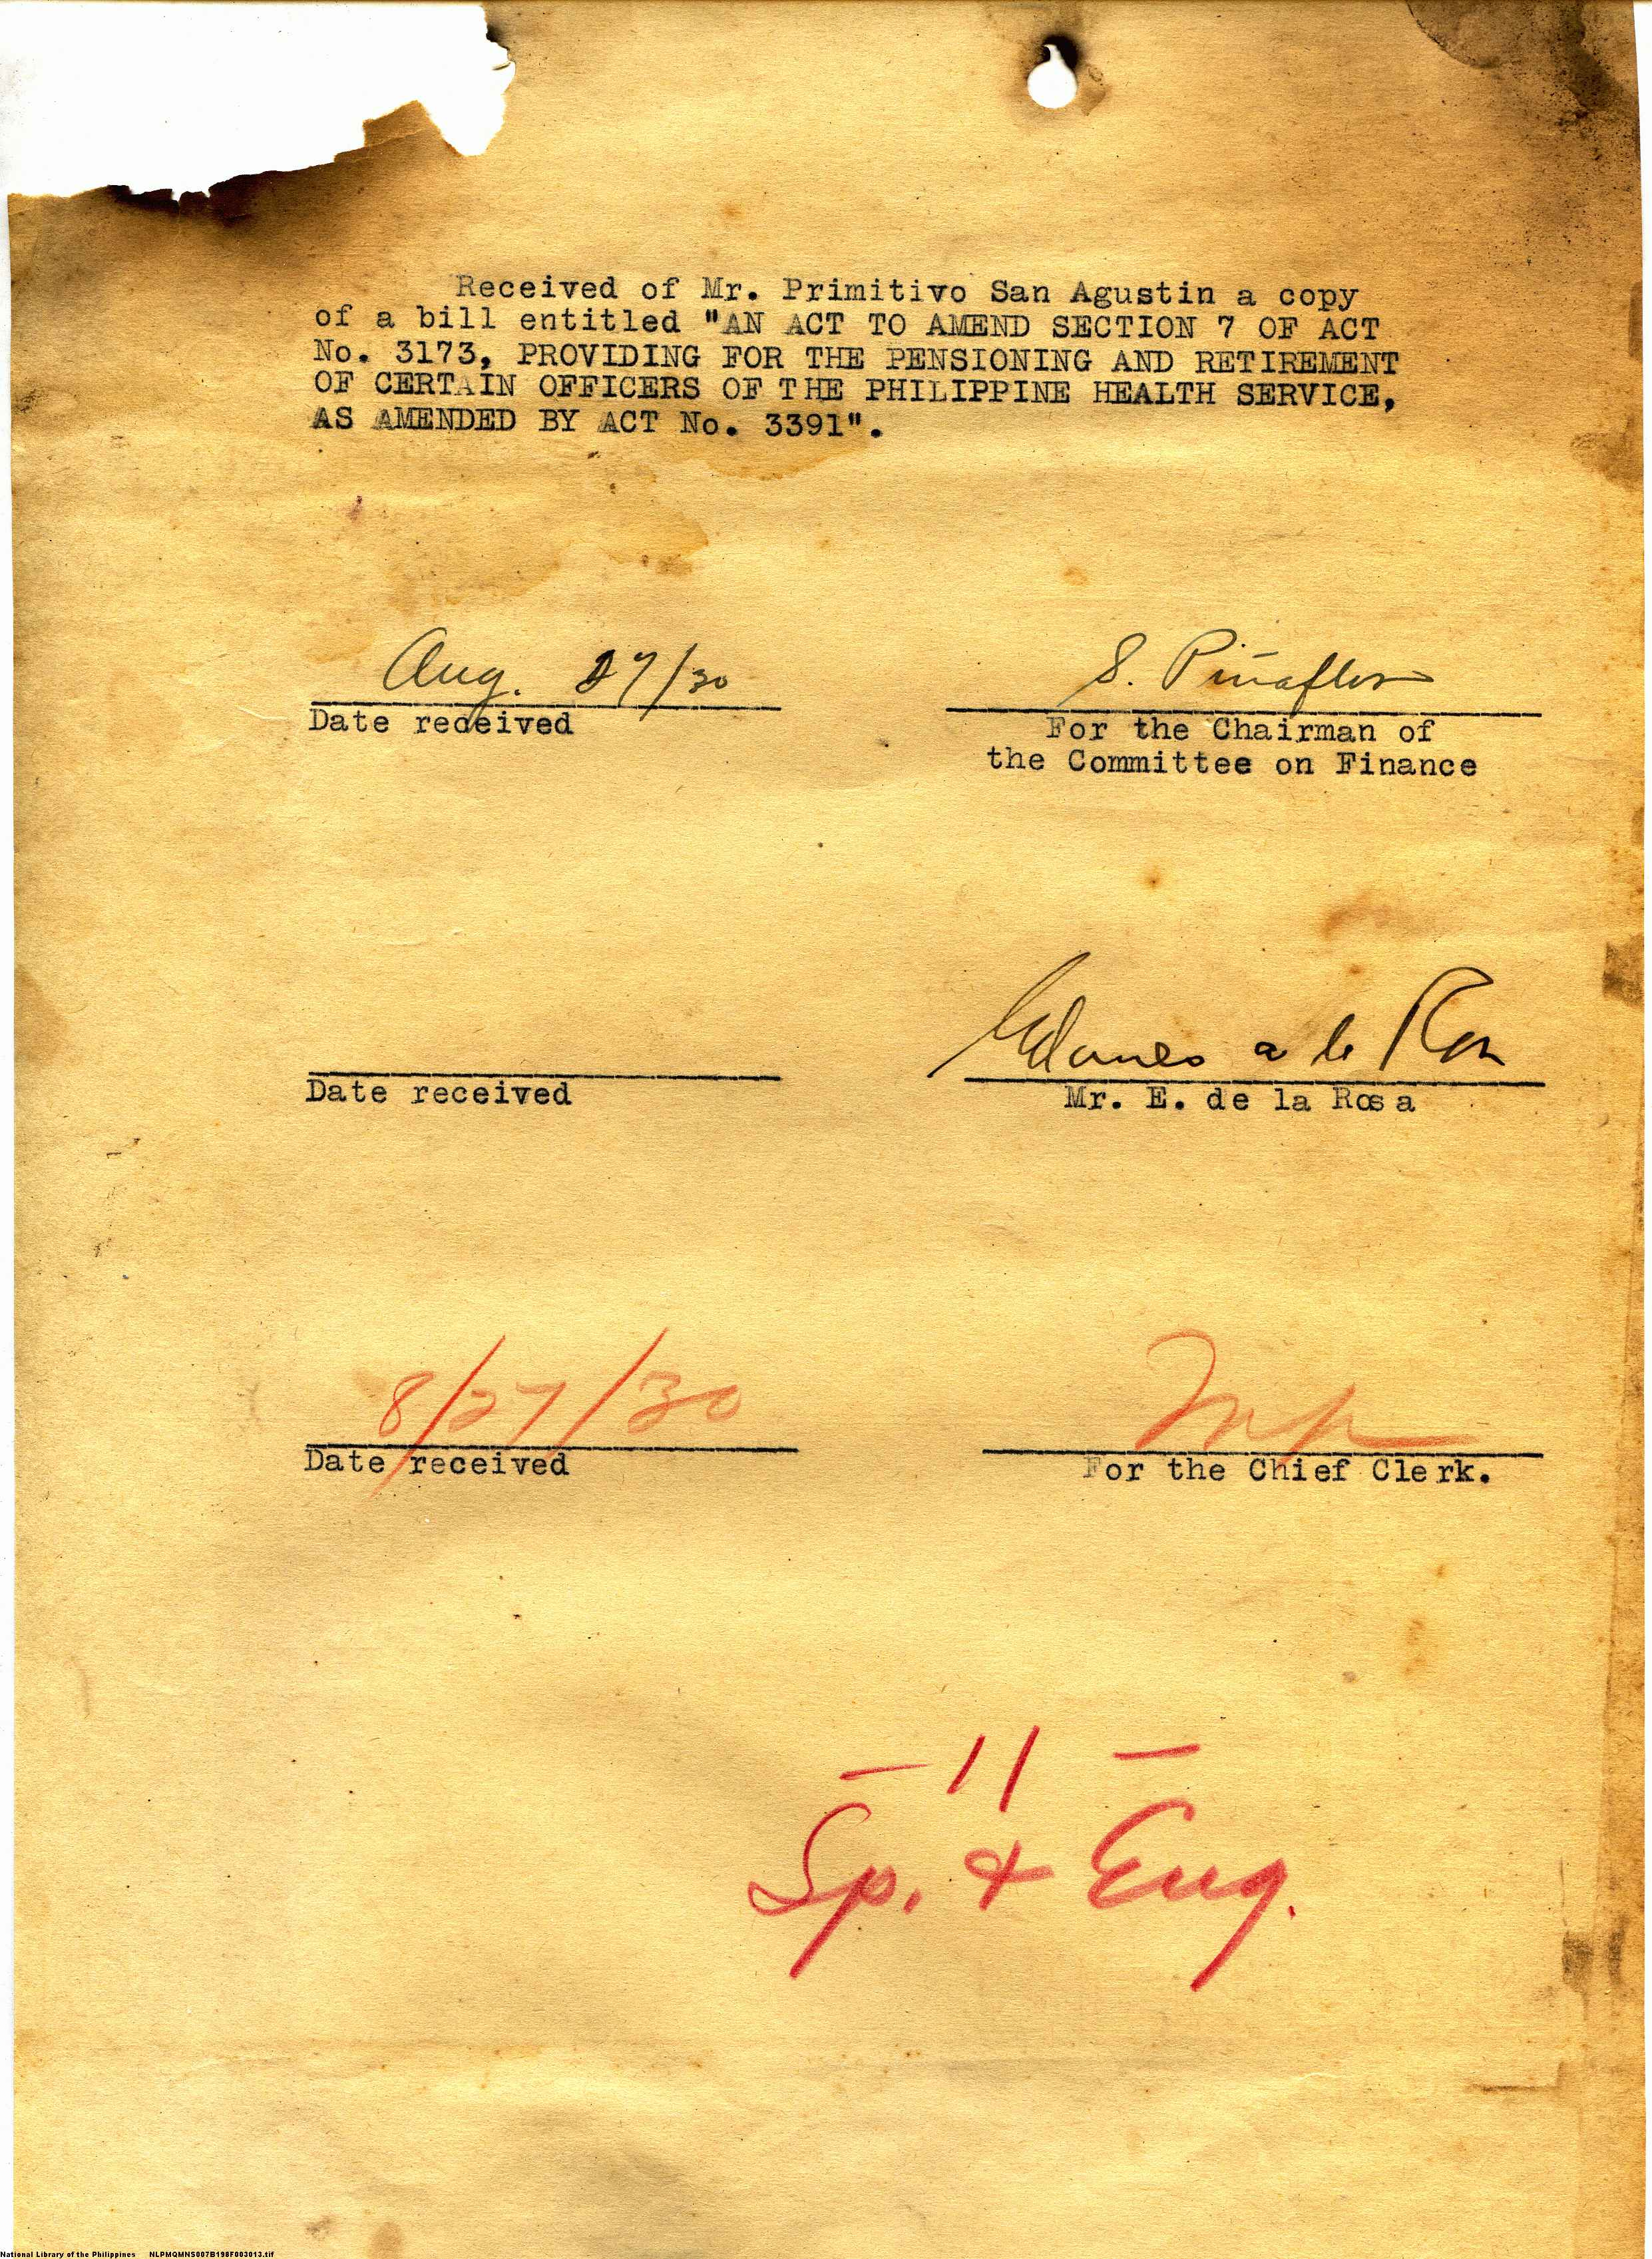 Received of Mr. Primitivo San Agustin a copy
of a bill entitled "AN ACT TO AMEND SECTION 7 OF ACT
No. 3173, PROVIDING FOR THE PENSIONING AND RETIREMENT
OF CERTAIN OFFICERS OF THE PHILIPPINE HEALTH SERVICE,
AS AMENDED BY ACT No. 3391".
Aug. 27/30
S. Piñaflor
Date received
For the Chairman of
the Committee on Finance
Date received
Mr. E. de la Rosa
8/27/30
Date received
For the Chief Clerk.
- 11 -
Sp. & Eng.
National Library of the Philippines NLPMQMNS007B198F003013.tif